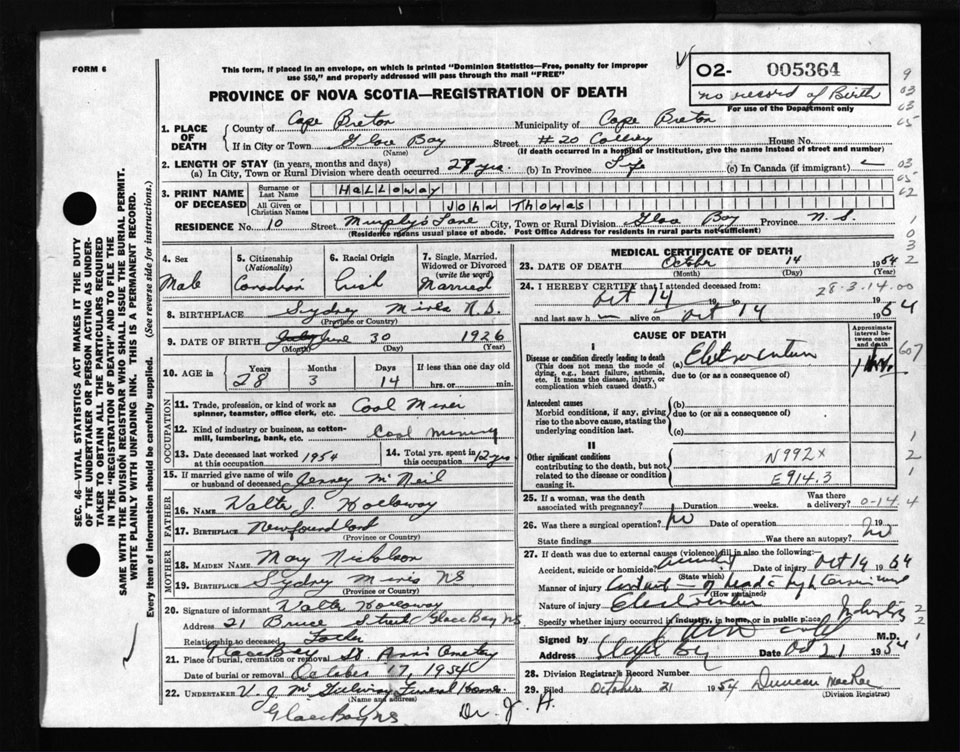 FORM 6
This form, if placed in an envelope, on which is printed "Dominion Statistics—Free, penalty for improper
use $50," and properly addressed will pass through the mail "FREE"
02- 005364
no record of Birth
For use of the Department only
PROVINCE OF NOVA SCOTIA—REGISTRATION OF DEATH
SEC. 46—VITAL STATISTICS ACT MAKES IT THE DUTY
OF THE UNDERTAKER OR PERSON ACTING AS UNDER-
TAKER TO OBTAIN ALL THE PARTICULARS REQUIRED
IN THE "REGISTRATION OF DEATH" AND TO FILE THE
SAME WITH THE DIVISION REGISTRAR WHO SHALL ISSUE THE BURIAL PERMIT.
WRITE PLAINLY WITH UNFADING INK. THIS IS A PERMANENT RECORD.
Every item of information should be carefully supplied. (See reverse side for instructions.)
1. PLACE OF DEATH County of Cape Breton Municipality of Cape Breton
If in City or Town Glace Bay Street #20 Colliery House No.
(Name) (If death occurred in a hospital or institution, give the name instead of street and number)
2. LENGTH OF STAY (in years, months and days)
(a) In City, Town or Rural Division where death occurred 28 yrs. (b) In Province Life (c) In Canada (if immigrant)
3. PRINT NAME OF DECEASED Surname or Last Name Halloway
All Given or Christian Names John Thomas
RESIDENCE No. 10 Street Murphy's Lane City, Town or Rural Division Glace Bay Province N.S.
(Residence means usual place of abode. Post Office Address for residents in rural parts not sufficient)
4. Sex 5. Citizenship (Nationality) 6. Racial Origin 7. Single, Married, Widowed or Divorced (write the word)
Male Canadian Irish Married
8. BIRTHPLACE Sydney Mines N.S.
(Province or Country)
9. DATE OF BIRTH June 30 1926
(Month) (Day) (Year)
10. AGE in Years Months Days If less than one day
28 3 14 hrs. or min.
OCCUPATION
11. Trade, profession, or kind of work as
spinner, teamster, office clerk, etc. Coal Miner
12. Kind of industry or business, as cotten-
mill, lumbering, bank, etc. Coal mining
13. Date deceased last worked at this occupation 1954 14. Total yrs. spent in this occupation 12 yrs
15. If married give name of wife
or husband of deceased McNeil
FATHER
16. NAME Walter J. Holloway
17. BIRTHPLACE Newfoundland
(Province or Country)
MOTHER
18. MAIDEN NAME Mary Nickolson
19. BIRTHPLACE Sydney Mines NS
(Province or Country)
20. Signature of informant Walter Holloway
Address 21 Bruce Street Glace Bay NS
Relationship to deceased Father
Glace Bay St. Anns Cemetery
21. Place of burial, cremation or removal
Date of burial or removal October 17, 1954
22. UNDERTAKER V. J. McGillivray Funeral Home.
(Name and address)
Glace Bay NS
Dr. J. H.
MEDICAL CERTIFICATE OF DEATH
23. DATE OF DEATH October 14 1954
(Month) (Day) (Year)
24. I HEREBY CERTIFY that I attended deceased from: 28-3-14.00
Oct 14 19 to Oct 14 1954
and last saw h alive on
CAUSE OF DEATH
Approximate interval between onset and death
I
Disease or condition directly leading to death (a) Electrocution
(This does not mean the mode of dying, e.g., heart failure, asthenia, etc. It means the disease, injury, or complication which caused death.)
due to (or as a consequence of)
Antecedent causes (b)
Morbid conditions, if any, giving rise to the above cause, stating the underlying condition last.
due to (or as a consequence of)
(c)
II
Other significant conditions
contributing to the death, but not related to the disease or condition causing it.
N992X
E914.3
25. If a woman, was the death associated with pregnancy? Duration weeks. Was there a delivery? 0-14.4
26. Was there a surgical operation? no Date of operation 19
State findings Was there an autopsy? no
27. If death was due to external causes (violence) fill in also the following:
Accident, suicide or homicide? accident Date of injury Oct 14 1954
(State which)
Manner of injury
(How sustained)
Nature of injury Electrocution
Specify whether injury occurred in industry, in home, or in public place Industry
Signed by M.D.
Address Glace Bay Date Oct 21 1954
28. Division Registrar's Record Number
29. Filed October 21 1954 Duncan MacRae
(Division Registrar)